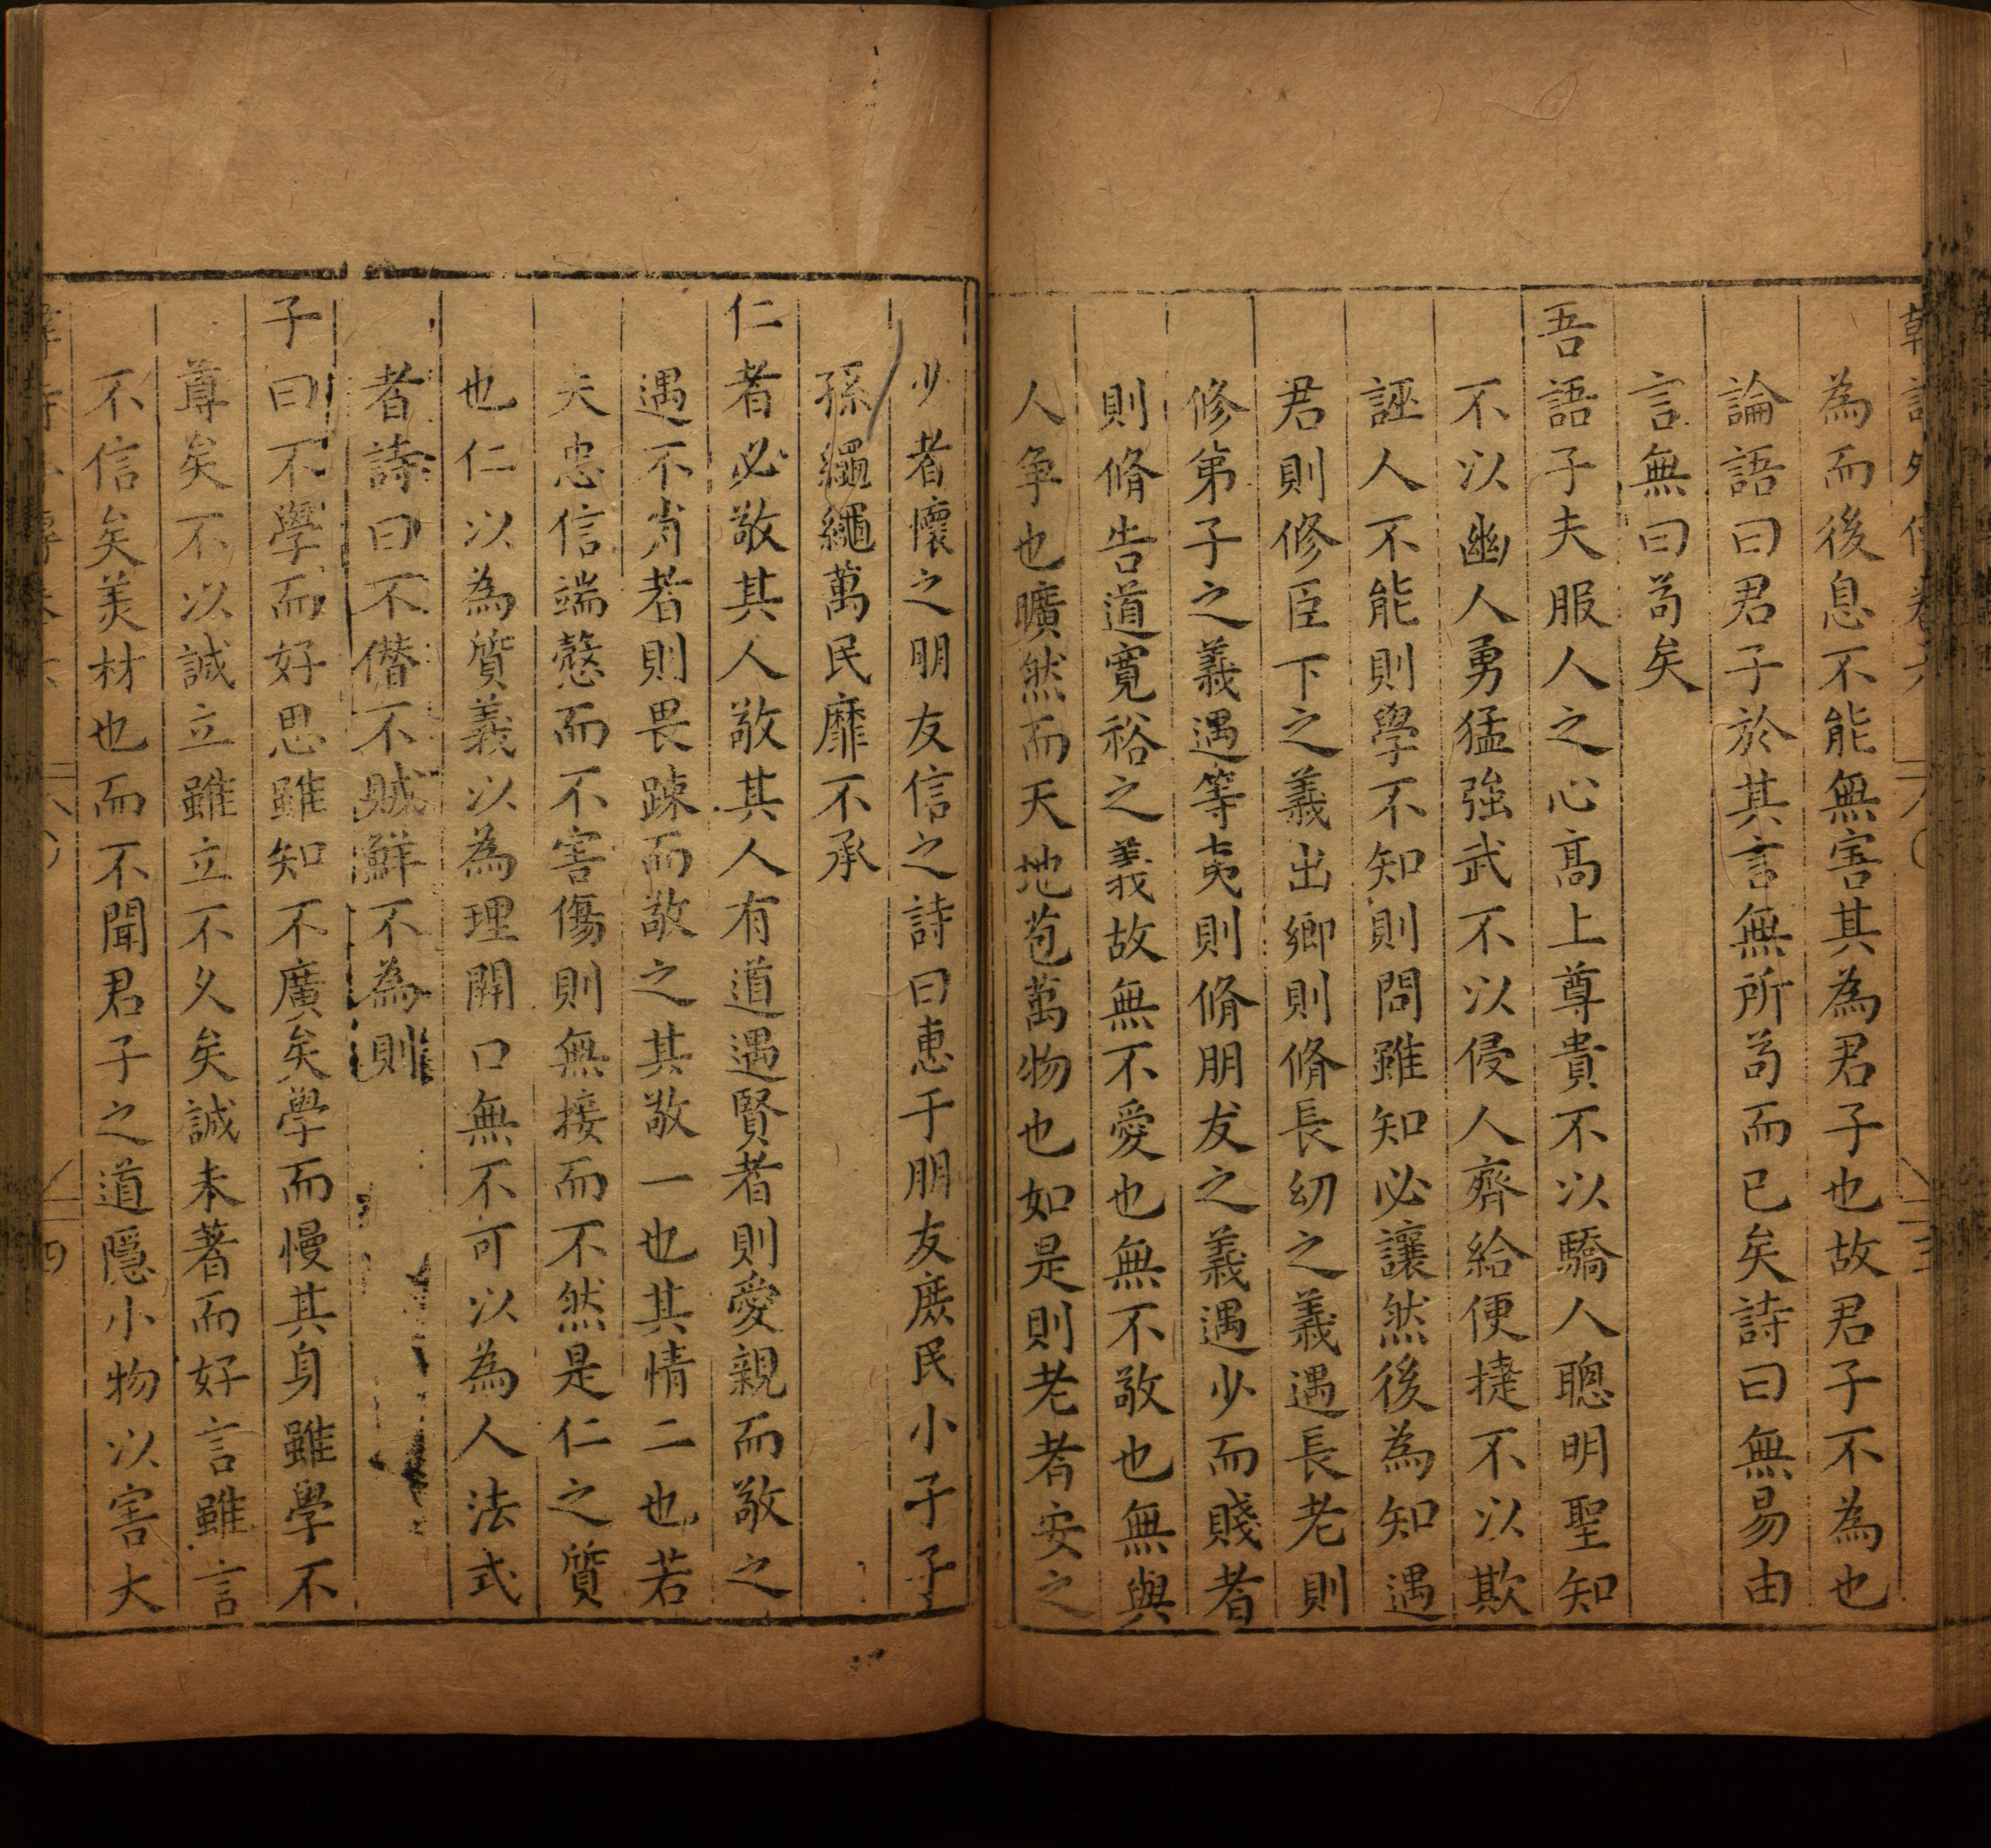 為而後息不能無害其為君子也故君子不為也
論語曰君子於其言無所苟而已矣詩曰無易由
言無曰苟矣
吾語子夫服人之心高上尊貴不以驕人聰明聖知
不以幽人勇猛強武不以侵人齊給便捷不以欺
誣人不能則學不知則問雖知必讓然後為知遇
君則修臣下之義出鄉則脩長幼之義遇長老則
修第子之義遇等夷則脩朋友之義遇少而賤者
則脩告道寬裕之義故無不愛也無不敬也無與
人爭也曠然而天地苞萬物也如是則老者安之
少者懷之朋友信之詩曰惠于朋友庻民小子子
孫繩繩萬民靡不承
仁者必敬其人敬其人有道遇賢者則愛親而敬之
遇不肖者則畏踈而敬之其敬一也其情二也若
夫忠信端愨而不害傷則無接而不然是仁之質
也仁以為質義以為理開口無不可以為人法式
者詩曰不僭不賊鮮不為則
子曰不學而好思雖知不廣矣學而慢其身雖學不
尊矣不以誠立雖立不久矣誠未著而好言雖言
不信矣美材也而不聞君子之道隱小物以害大